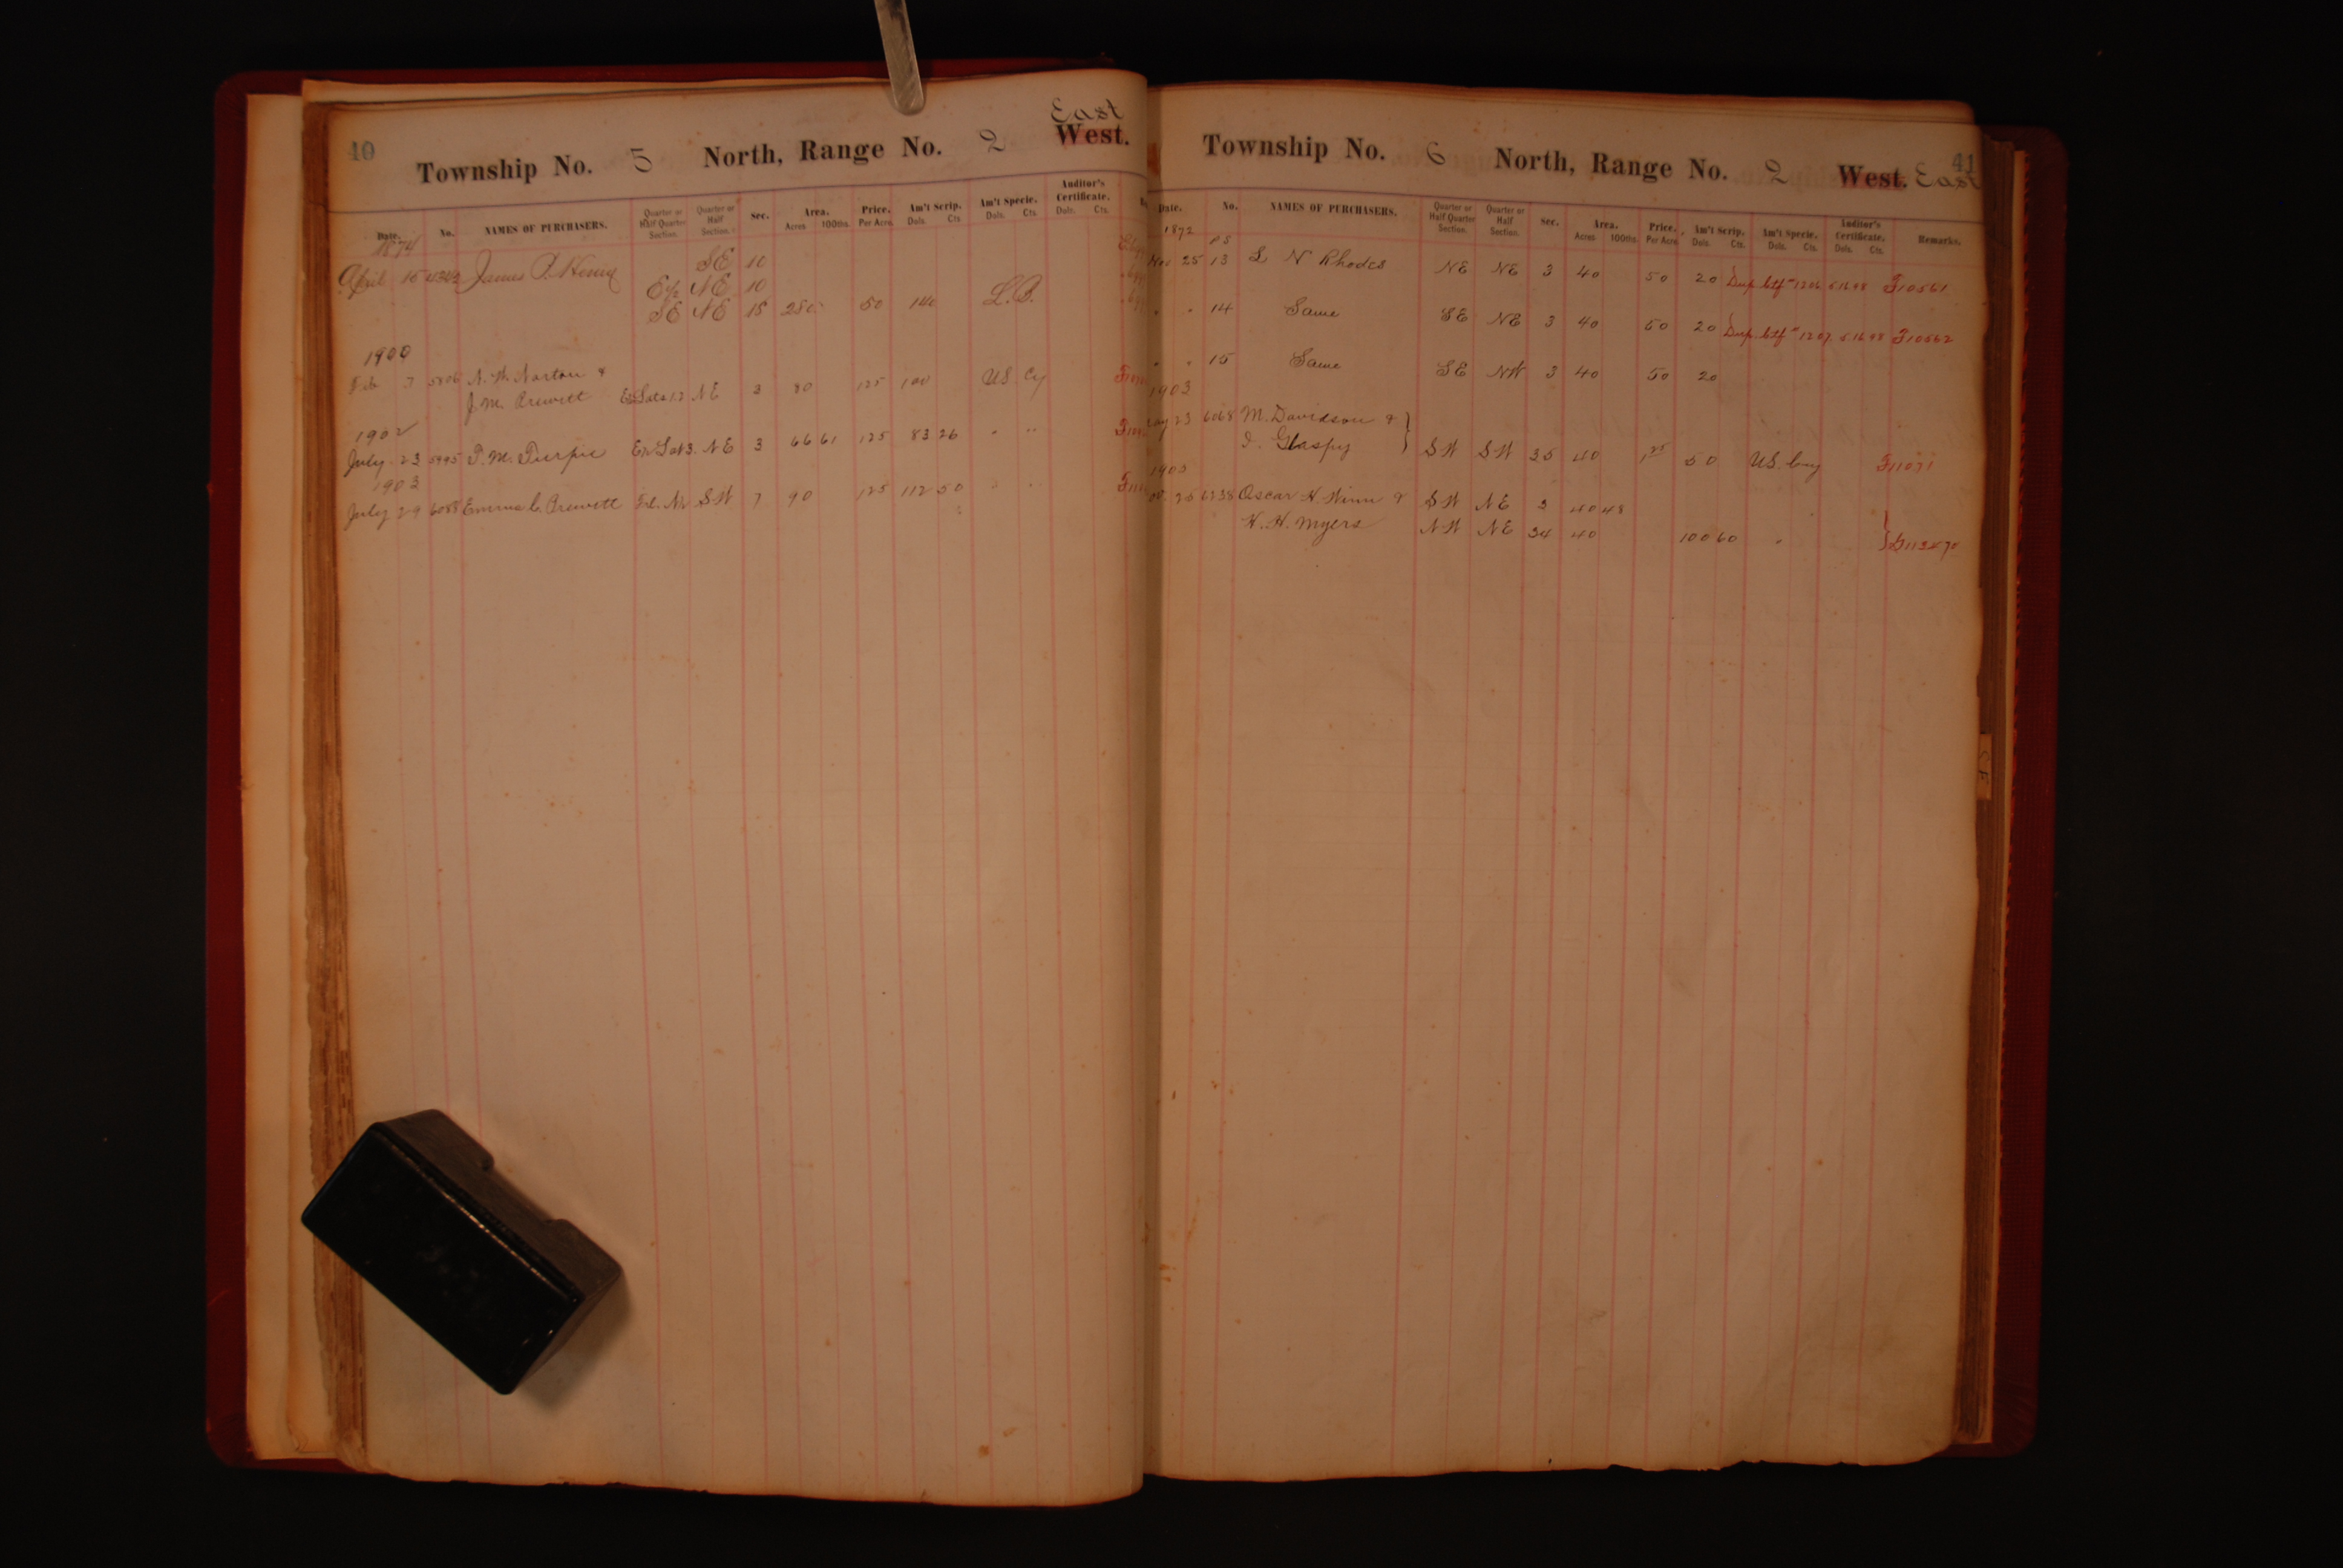 40
East
Township No. 5 North, Range No. 2 West.
Date. No. NAMES OF PURCHASERS. Quarter or Half Quarter Section. Quarter or Half Section. Sec. Area. Acres 100ths. Price. Per Acre. Am't Scrip. Dols. Cts. Am't Specie. Dols. Cts. Auditor's Certificate. Dols. Cts.
1874
SE 10
April 15 4342 James P. Henry E½ NE 10
SE NE 15 280 50 140 L.B.
1900
Feb 7 5806 N. W. Norton &
J. M. Prewett NE 3 80 125 100 US Cy
1902
July 23 5995 P. M. NE 3 66 61 125 83 26 " "
1903
July 29 6088 Emma C. Prewett SW 7 90 125 112 50 " "
41
Township No. 6 North, Range No. 2 West. East
Date. No. NAMES OF PURCHASERS. Quarter or Half Quarter Section. Quarter or Half Section. Sec. Area. Acres 100ths. Price. Per Acre. Am't Scrip. Dols. Cts. Am't Specie. Dols. Cts. Auditor's Certificate. Dols. Cts. Remarks.
1872
Nov 25 13 L N Rhodes NE NE 3 40 50 20 Dup. Ctf # 1206 5.16.98 F10561
" " 14 Same SE NE 3 40 50 20 Dup. Ctf # 1207 5.16.98 F10562
" " 15 Same SE NW 3 40 50 20
1903
23 6068 M. Davidson &
I. Glaspy SW SW 35 40 1.25 50 US. Cuy F11071
1905
25 6238 Oscar H Winn & SW NE 3 40 48
H. H. Myers NW NE 34 40 100 60 "